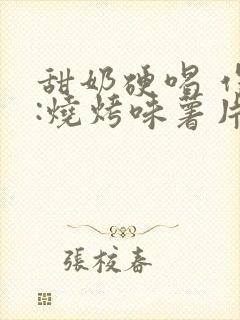 甜奶硬唱
:燒烤味薯片
張校春